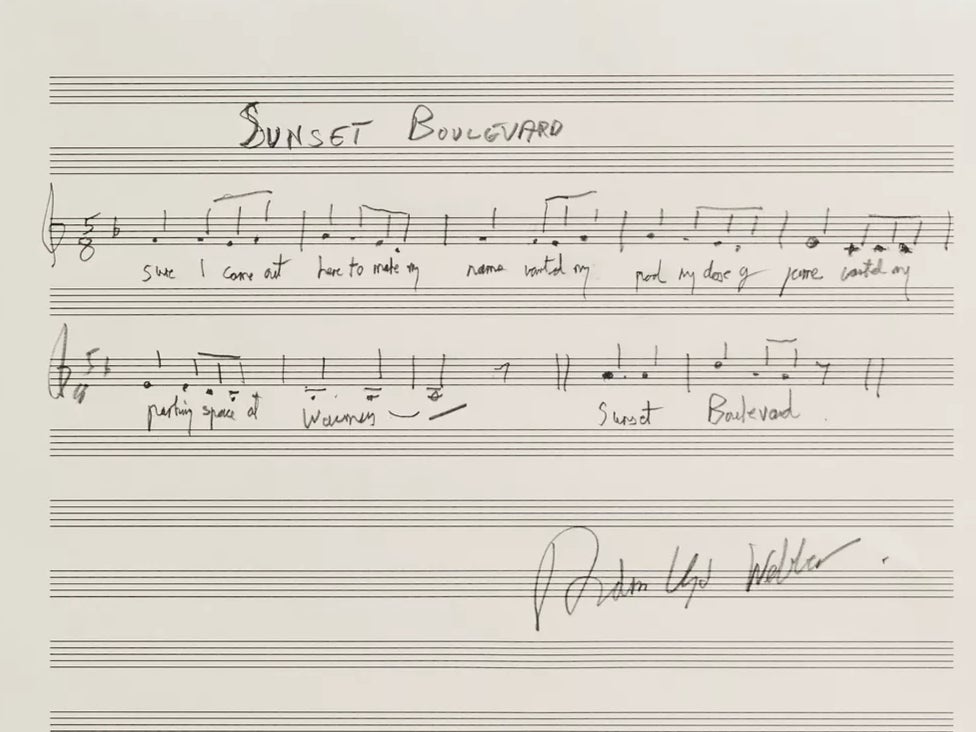 SUNSET BOULEVARD
5
8
Sure I came out here to make my name wanted my pool my dose of fame wanted my
5
8
parking space at Warners Sunset Boulevard.
Andrew Lloyd Webber